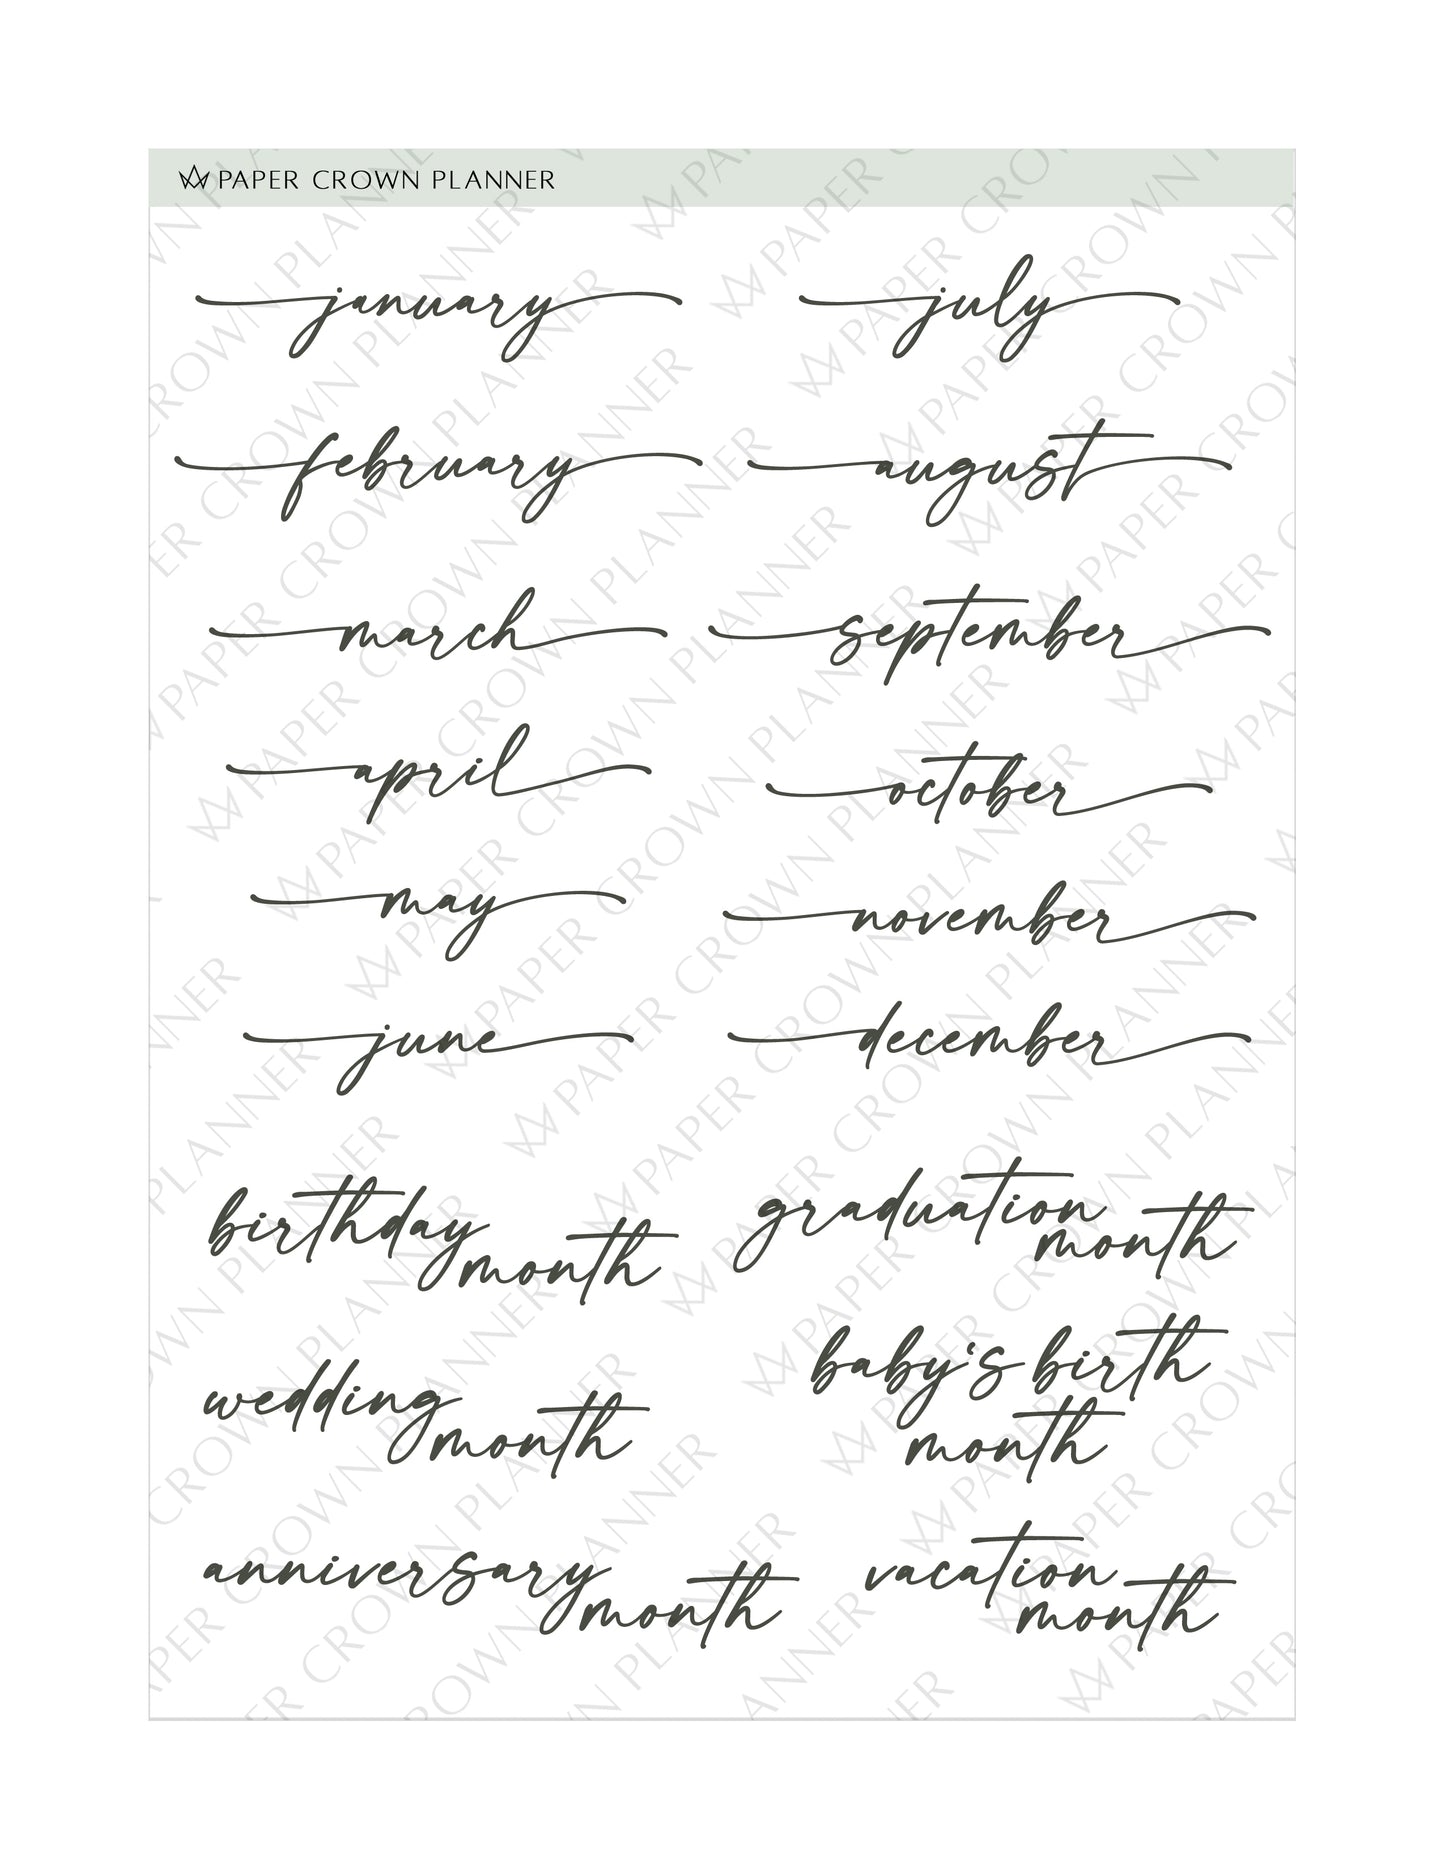 PAPER CROWN PLANNER
january
february
march
april
may
june
july
august
september
october
november
december
birthday
month
wedding
month
anniversary
month
graduation
month
baby's birth
month
vacation
month